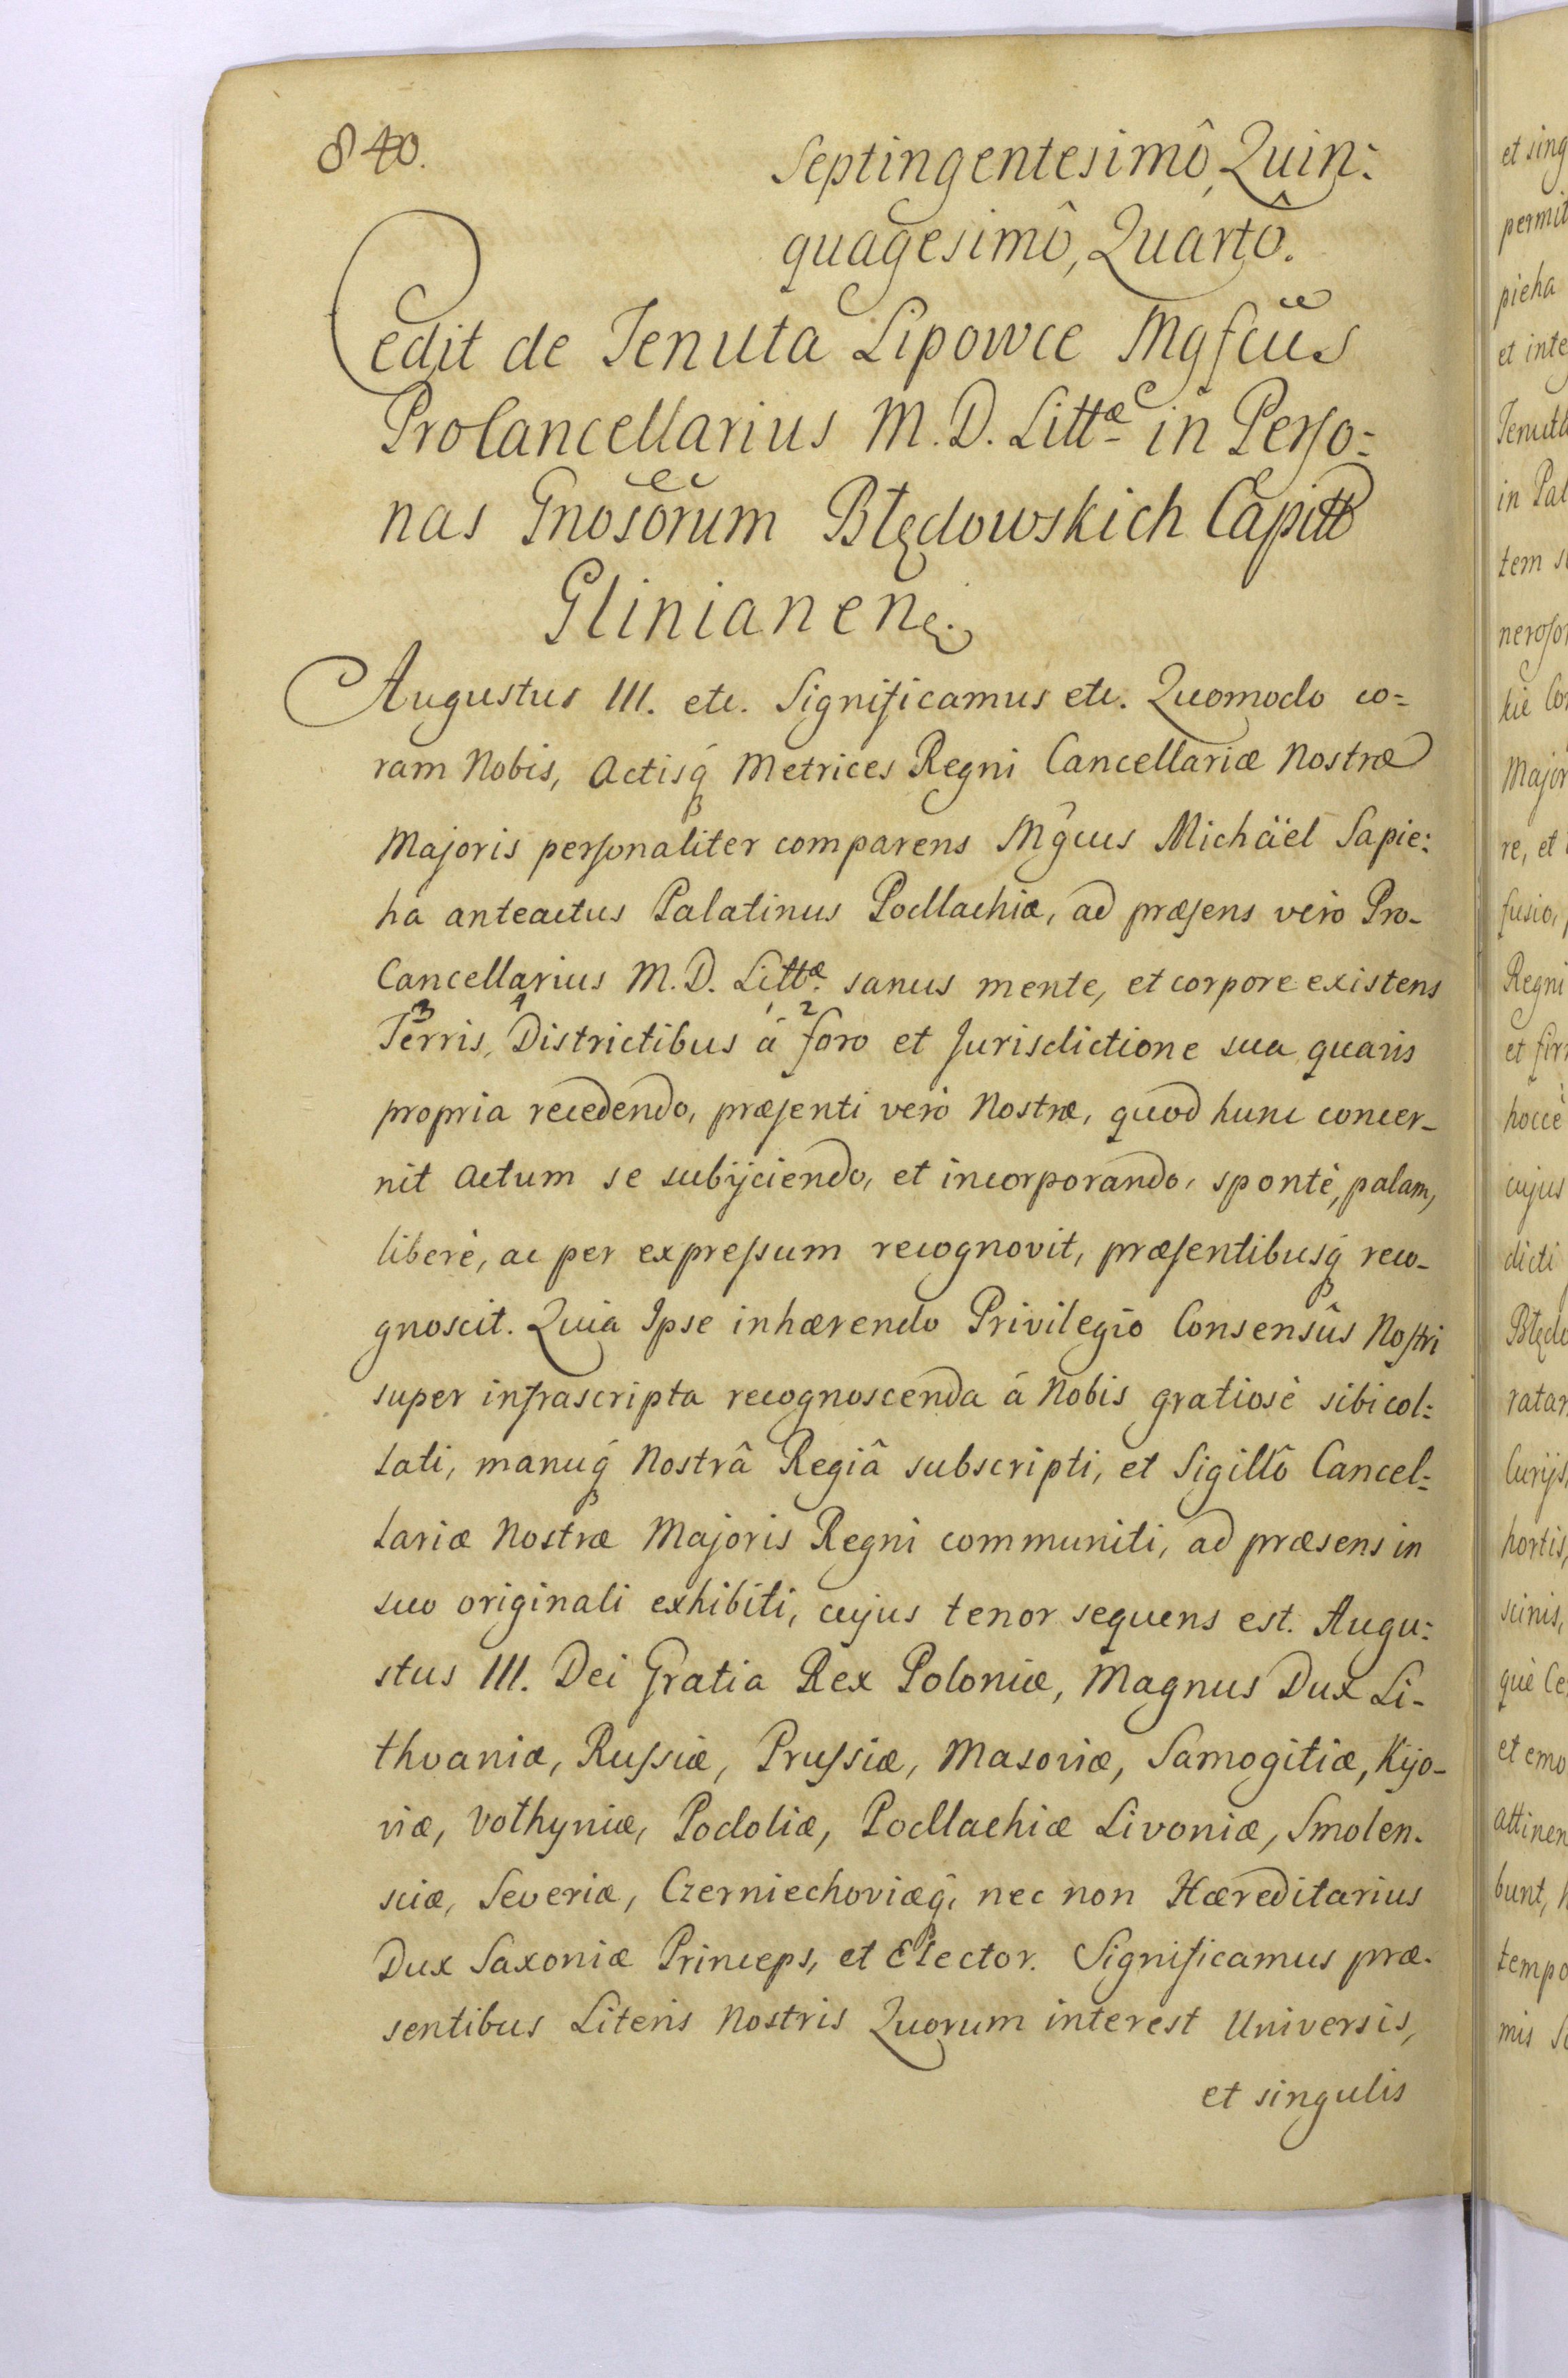 840.
Septingentesimô, Quin:
quagesimô, Quartô.
Cedit de Tenuta Lipowce Mgfcus
ProCancellarius M. D. Littæ in Perso:
nas Gnosorum Błędowskich Capitt
Glinianen.
Augustus III. etc. Significamus etc. Quomodo co=
ram Nobis, Actisq́ Metrices Regni Cancellariæ Nostræ
Majoris personaliter comparens Mg̃cus Michäel Sapie:
ha anteactus Palatinus Podlachiæ, ad præsens verò Pro-
Cancellarius M. D. Littæ. sanus mente, et corpore existens
Terris, Districtibus á foro et Jurisdictione sua quavis
propria recedendo, præsenti verò Nostræ, quod hunc concer-
nit Actum se subijciendo, et incorporando, spontè, palam,
liberè, ac per expressum recognovit, præsentibusq́ reco-
gnoscit. Quia Ipse inhærendo Privilegio Consensûs Nostri
super infrascripta recognoscenda á Nobis gratiosè sibi col:
lati, manuq́ Nostrâ Regiâ subscripti, et Sigillô Cancel:
lariæ Nostræ Majoris Regni communiti, ad præsens in
suo originali exhibiti, cujus tenor sequens est. Augu:
stus III. Dei Gratia Rex Poloniæ, Magnus Dux Li-
thvaniæ, Russiæ, Prussiæ, Masoviæ, Samogitiæ, Kijo-
viæ, Volhyniæ, Podoliæ, Podlachiæ Livoniæ, Smolen-
sciæ, Severiæ, Czerniechoviæq́, nec non Hæreditarius
Dux Saxoniæ Princeps, et Elector. Significamus præ-
sentibus Literis Nostris Quorum interest Universis,
et singulis